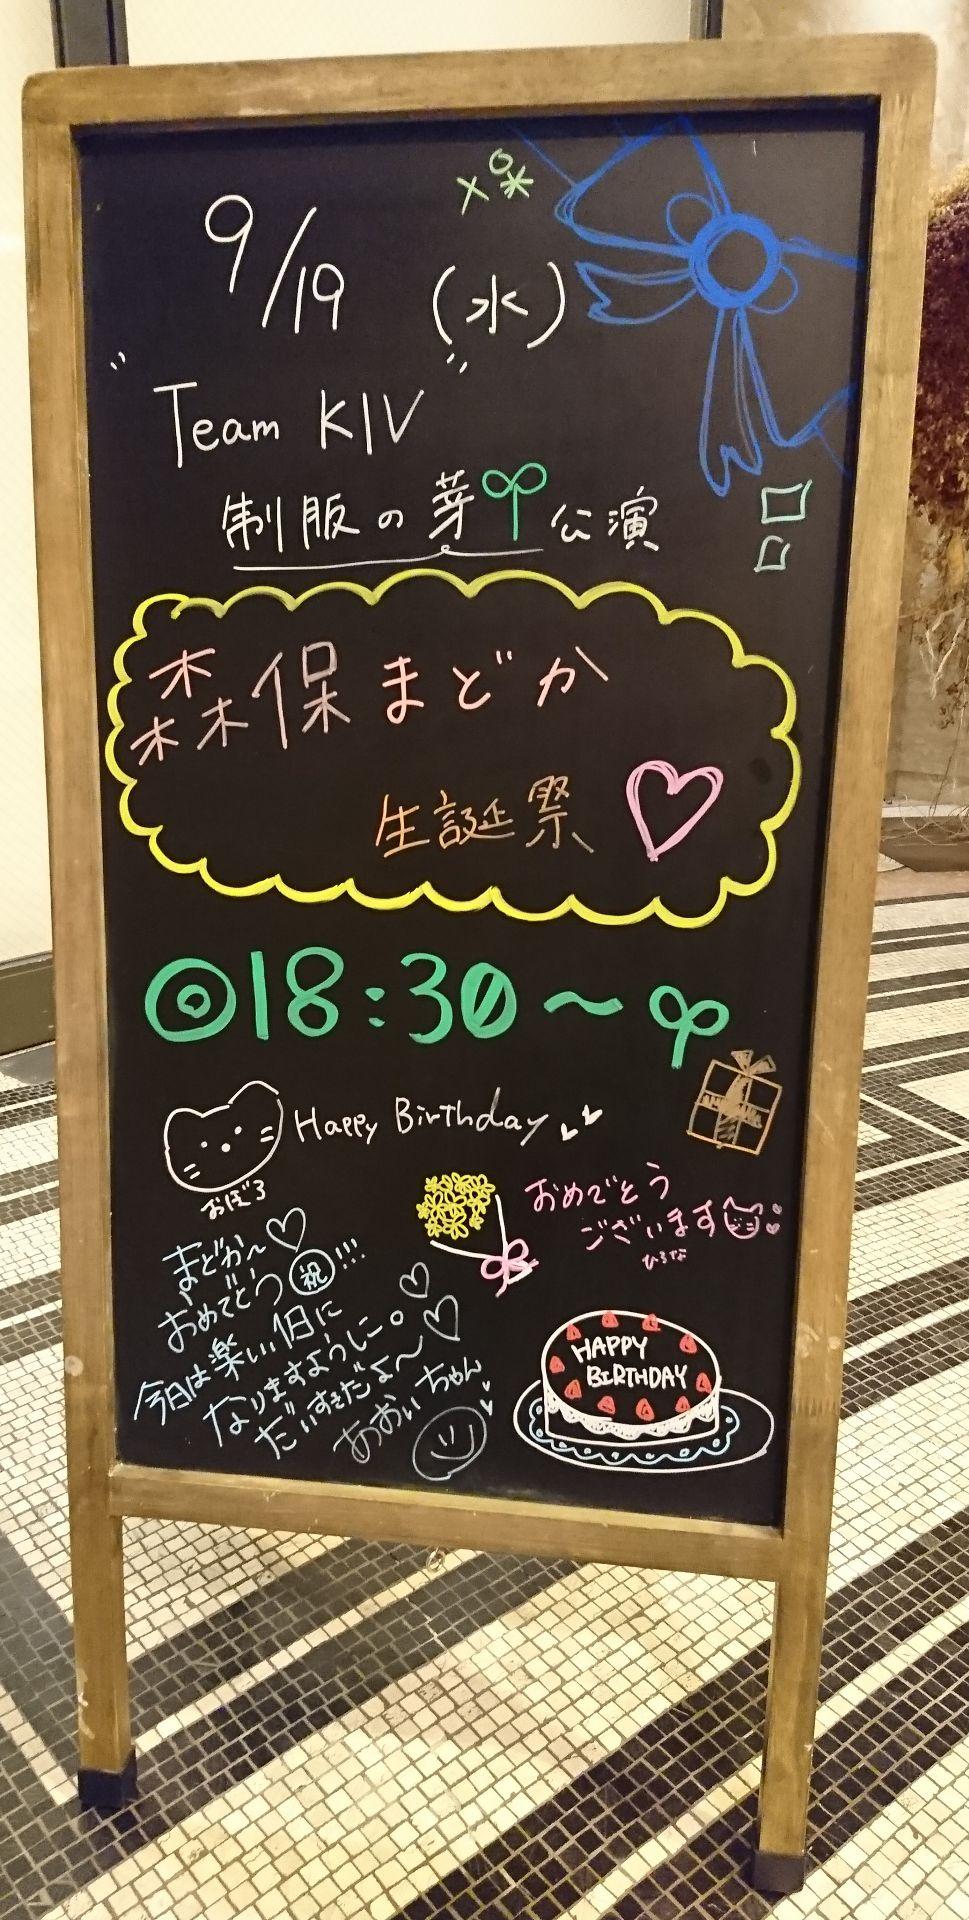 9/19 (水)
"Team KIV"
制服の芽公演
森保まどか
生誕祭
◎18:30〜
Happy Birthday
おぼろ
おめでとう
ございます
ひろな
まどか〜♡
おめでとう㊗!!!
今日は楽しい1日に
なりますように。♡
だいすきだよ〜♡
あおいちゃん
HAPPY
BIRTHDAY